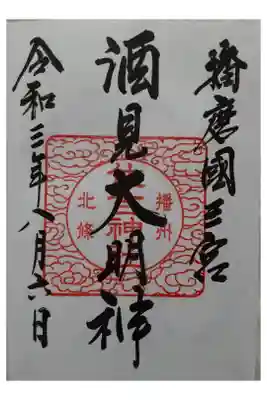 播磨國三宮
酒見大明神
播州
北條
令和三年八月六日